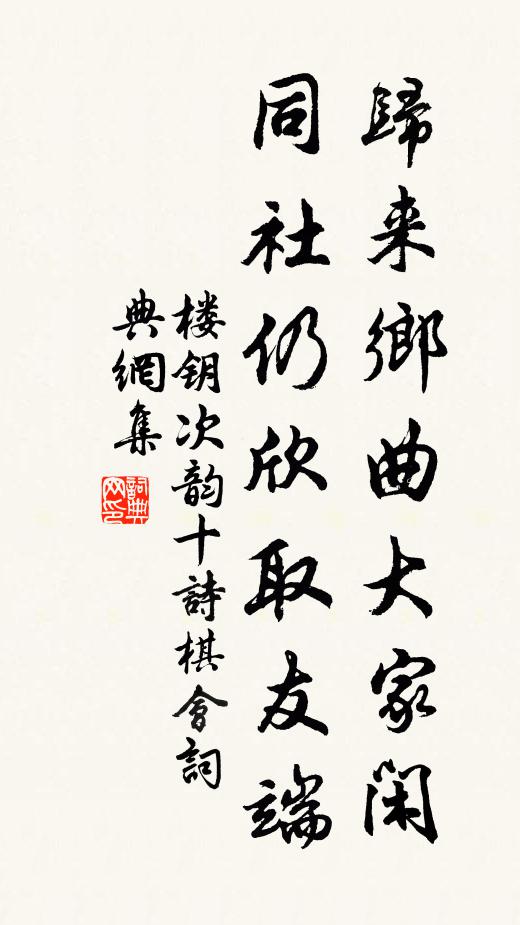 歸来鄉曲大家闲
同社仍欣取友端
楼钥次韵十詩棋會詞
典網集
詞典
网印